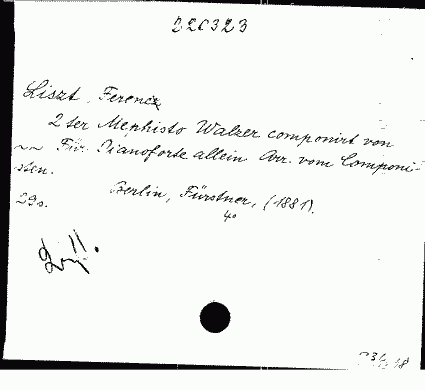 220323
Liszt, Ferencz
2ter Mephisto Walzer componirt von
~~ Für Pianoforte allein Arr. vom Componi-
sten.
Berlin, Fürstner, (1881).
29s. 4o